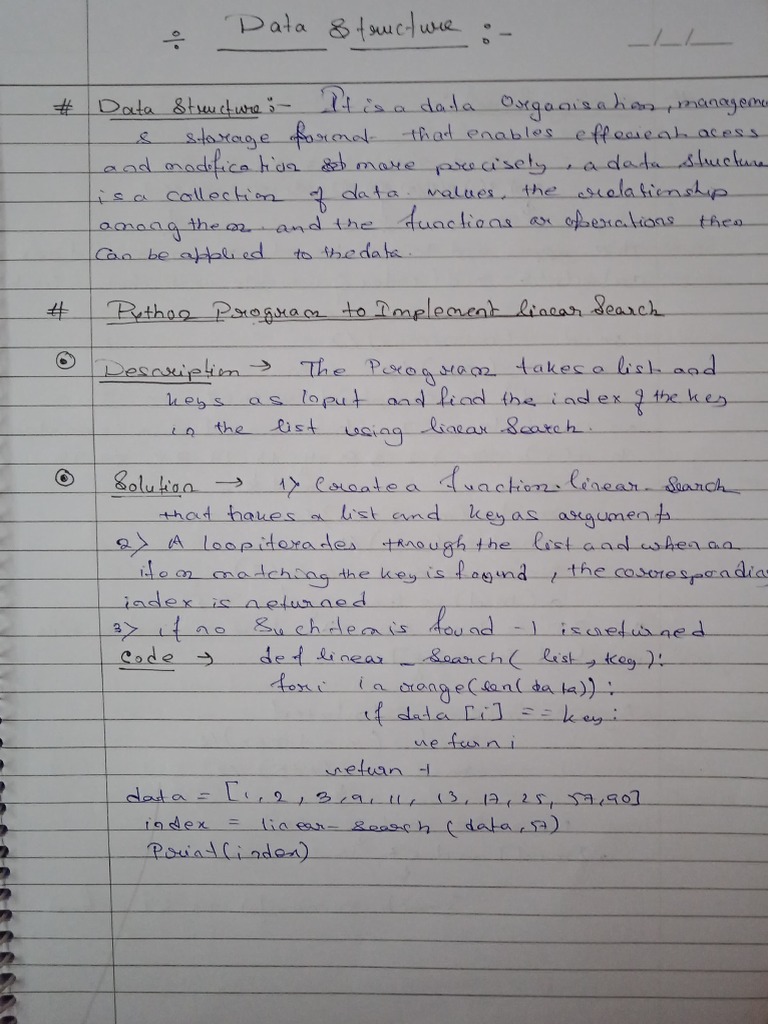 ÷ Data Structure :-
_/_/__
# Data Structure :- It is a data Organisation, manageme
& storage format that enables effecient acess
and modification more precisely, a data structure
is a collection of data values, the relationship
among them and the functions or operations
Can be applied to the data.
# Python Program to Implement linear Search
Description → The Program takes a list and
keys as Input and find the index of the key
in the list using linear Search.
Solution → 1> Create a function linear - Search
that takes a list and key as arguments
2> A loop iterates through the list and when an
item matching the key is found, the correspondin
index is returned
3> if no such item is found -1 is returned
Code → def linear _ Search( list, key ):
for i in range(len(data)):
if data [i] == key:
return i
return -1
data = [1, 2, 3, 9, 11, 13, 17, 25, 57, 90]
index = linear - search (data, 57)
Print(index)